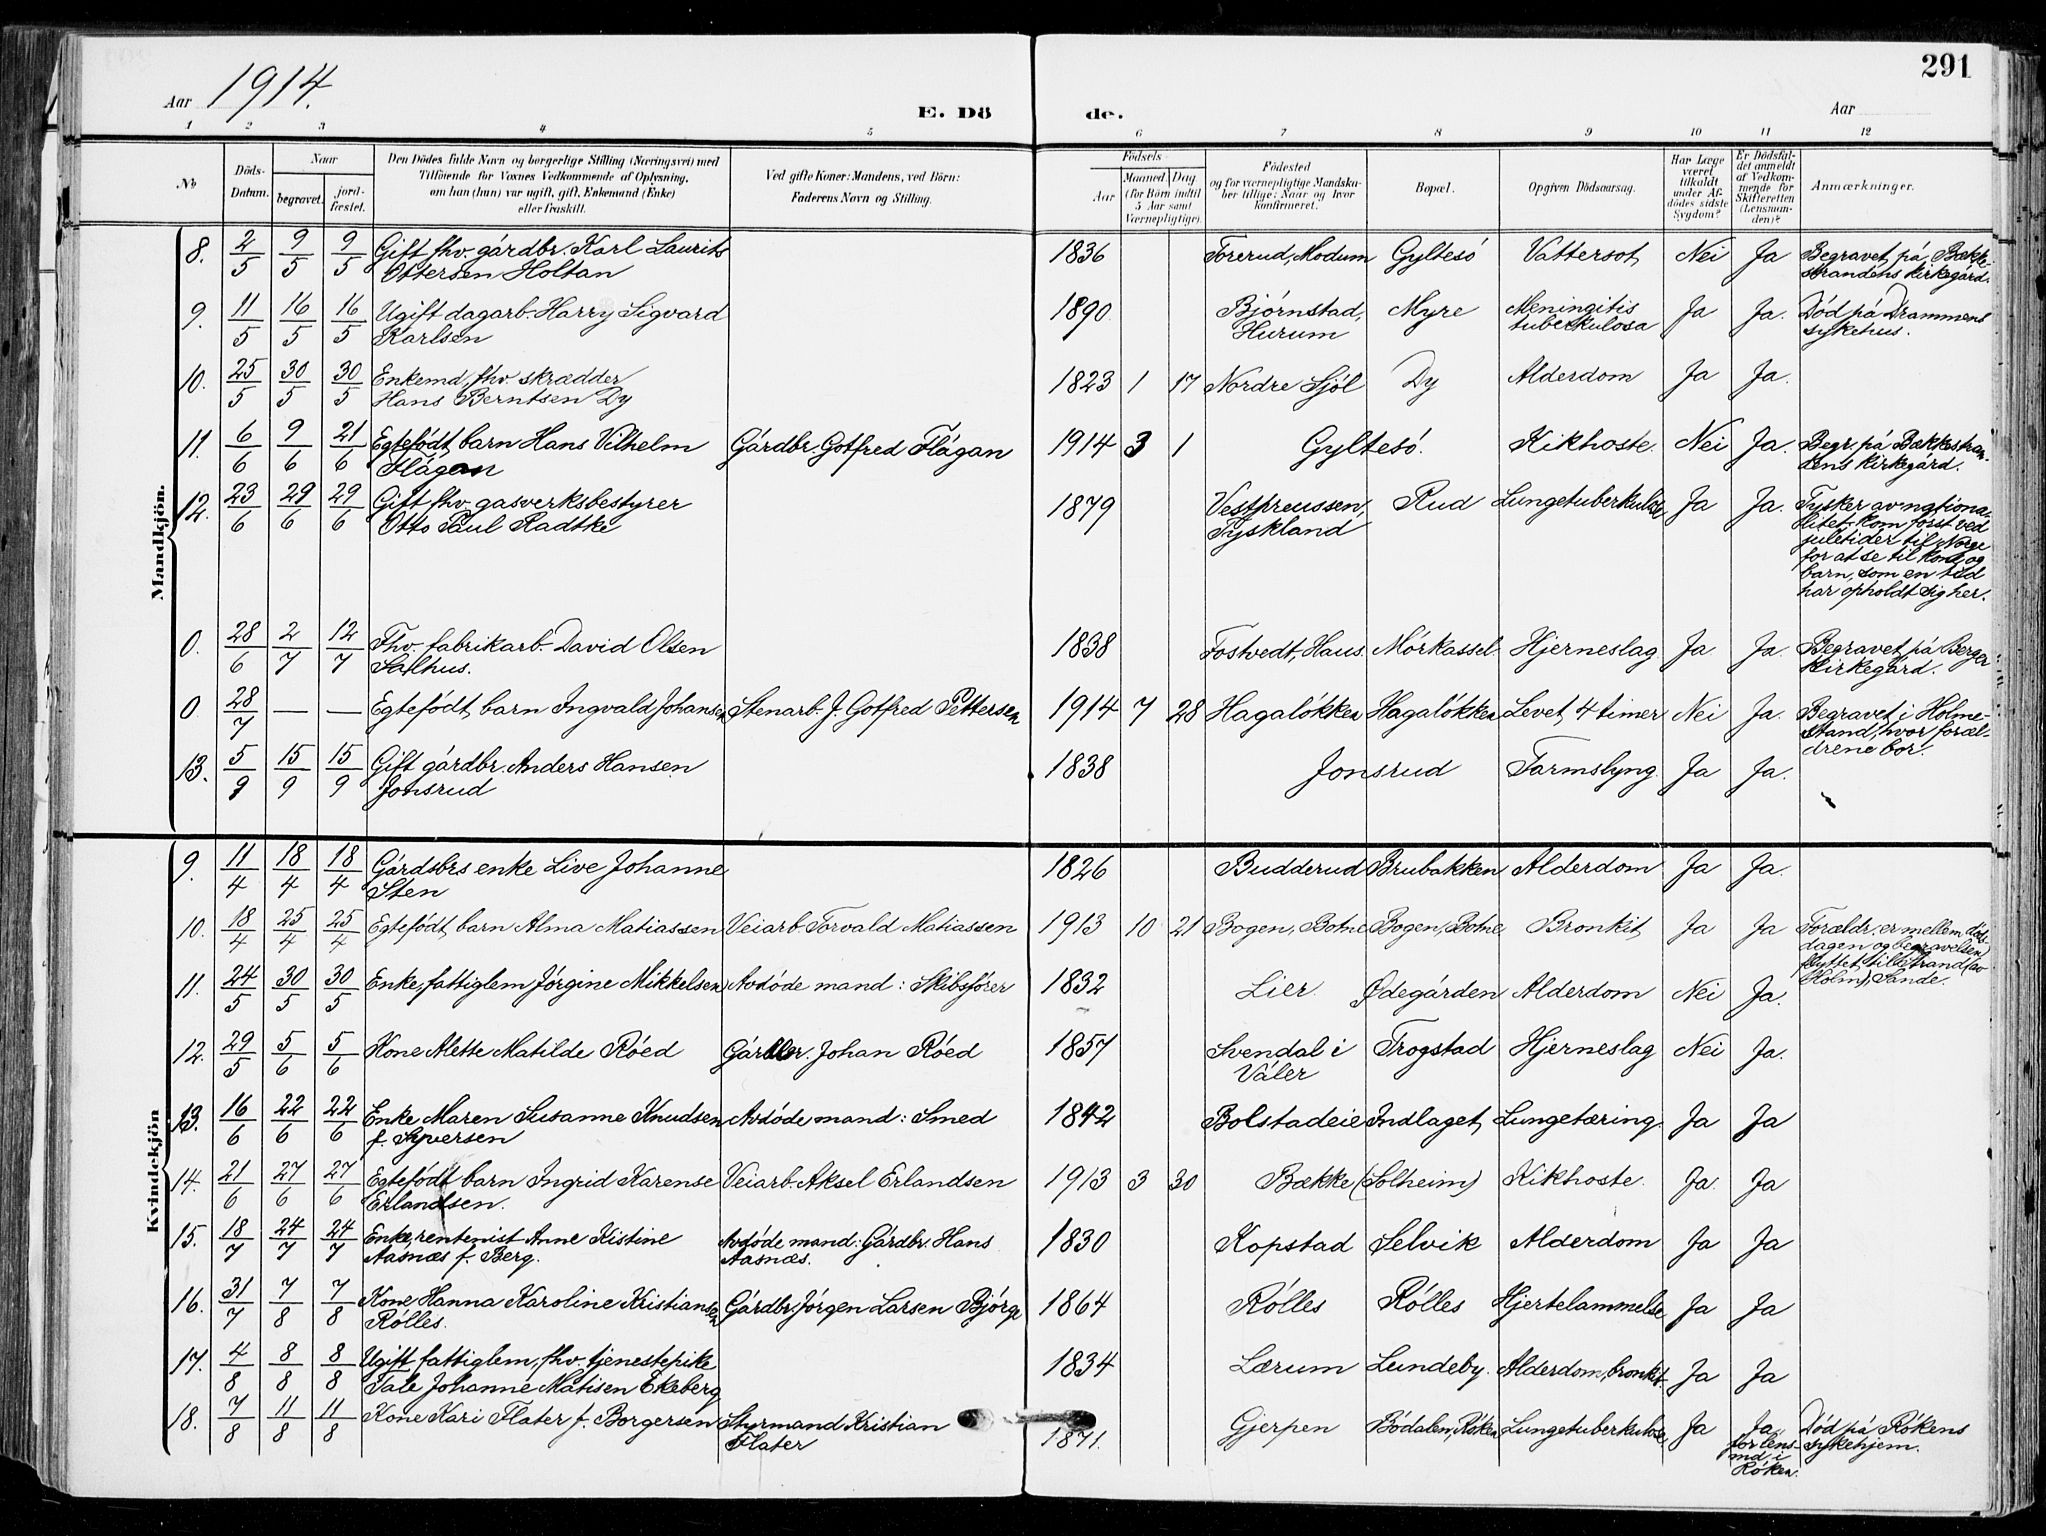 291
Aar 1914.
E. Dö de.
Aar
1 2 3 4 5 6 7 8 9 10 11 12
No
Döds-Datum.
Naar
begravet.
jord-fæstet.
Den Dödes fulde Navn og borgerlige Stilling (Næringsvei) med
Tilföiende for Voxnes Vedkommende af Oplysning,
om han (hun) var ugift, gift, Enkemand (Enke)
eller fraskilt.
Ved gifte Koner: Mandens, ved Börn:
Faderens Navn og Stilling.
Födsels-
Aar
Maaned Dag
(for Börn indtil
5 Aar samt
Værnepligtige).
Födested
og for værnepligtige Mandska-
ber tillige: Naar og hvor
konfirmeret.
Bopæl.
Opgiven Dödsaarsag.
Har Læge
været
tilkaldt
under Af-
dödes sidste
Sygdom?
Er Dödsfal-
det anmeldt
af Vedkom-
mende for
Skifteretten
(Lensman-
den)?
Anmærkninger.
Mandkjön.
8. 2/5 9/5 9/5 Gift fhv. gárdbr. Karl Laurits 1836 Forerud, Modum Gyltesó Vattersot Nei Ja Begravet på Bække-
Ottersen Holtan strandens kirkegård.
9. 11/5 16/5 16/5 Ugift dagarb. Harry Sigvard 1890 Bjórnstad, Myre Meningitis Ja Ja. Död på Drammens
Karlsen Hurum tuberkulosa sykehus.
10. 25/5 30/5 30/5 Enkemd. fhv. skrædder 1823 1 17 Nordre Sjól Dy Alderdom Ja Ja.
Hans Berntsen Dy
11. 6/6 9/6 21/6 Egtefödt barn Hans Vilhelm Gárdbr. Gotfred Flágan 1914 3 1 Gyltesó. Kikhoste. Nei Ja. Begr. på Bækkestran-
Flágan dens kirkegård.
12. 23/6 29/6 29/6 Gift fhv. gasverksbestyrer 1879 Vestpreussen, Rud Lungetuberkulose Ja Ja. Tysker av nationa-
Otto Paul Radtke Tyskland litet kom först ved
juletider til Norge
for at se til kone og
barn, som en tid
har opholdt sig her.
0. 28/6 2/7 12/7 Fhv. fabrikarb. David Olsen 1838 Fostvedt, Haus. Mórkassel. Hjerneslag Ja Ja. Begravet på Berger
Salhus. kirkegård.
0 28/7 — — Egtefödt barn Ingvald Johansen Stenarb. J. Gotfred Pettersen 1914 7 28 Hagalókken Hagalókken Levet 4 timer Nei Ja. Begravet i Holme-
strand, hvor foræl-
drene bor.
13. 5/9 15/9 15/9 Gift gárdbr. Anders Hansen 1838 Jonsrud Tarmslyng. Ja Ja.
Jonsrud
Kvindekjön
9. 11/4 18/4 18/4 Gárdsbrs enke Live Johanne 1826 Budderud Brubakken Alderdom Ja Ja.
Sten
10. 18/4 25/4 25/4 Egtefödt barn Alma Matiassen Veiarb. Torvald Matiassen 1913 10 21 Bogen, Botne Bogen, Botne Bronkit Ja Ja Forældr. er mellem döds-
dagen og begravelsen
flyttet til Strand (av
Holm), Sande.
11. 24/5 30/5 30/5 Enke, fattiglem Jórgine Mikkelsen Avdóde mand: Skibsfórer 1832 Lier. Ødegården Alderdom Nei Ja.
12. 29/5 5/6 5/6 Kone Mette Matilde Róed Gárdbr. Johan Róed 1857 Svendal i Trogstad Hjerneslag Nei Ja.
Váler
13. 16/6 22/6 22/6 Enke Maren Susanne Knudsen Avdóde mand: Smed 1842 Bolstadeie Indlaget Lungetæring. Ja Ja
f. Syversen
14. 21/6 27/6 27/6 Egtefödt barn Ingrid Karense Veiarb. Aksel Erlandsen 1913 3 30 Bække (Solheim) Kikhoste. Ja. Ja
Erlandsen.
15. 18/7 24/7 24/7 Enke, rentenist Anne Kistine Avdóde mand: Gárdbr. Hans 1830 Kopstad Selvik Alderdom Ja Ja
Aasnæs f. Berg. Aasnæs.
16. 31/7 7/8 7/8 Kone Hanna Karoline Kristiansen Gárdbr. Jórgen Larsen Bjórge 1864 Rólles Rólles Hjertelammelse Ja Ja
Rólles.
17. 4/8 8/8 8/8 Ugift fattiglem, fhv. tjenestepike 1834 Lærum Lundeby. Alderdom, bronkit. Ja Ja
Tale Johanne Matisen Ekeberg
18. 7/8 11/8 11/8 Kone Kari Flater f. Borgersen Styrmand Kristian 1871. Gjerpen Bódalen, Róken Lungetuberkulose, Ja Ja, Död på Rókens
Flater for lens- sykehjem.
md. i
Róken.